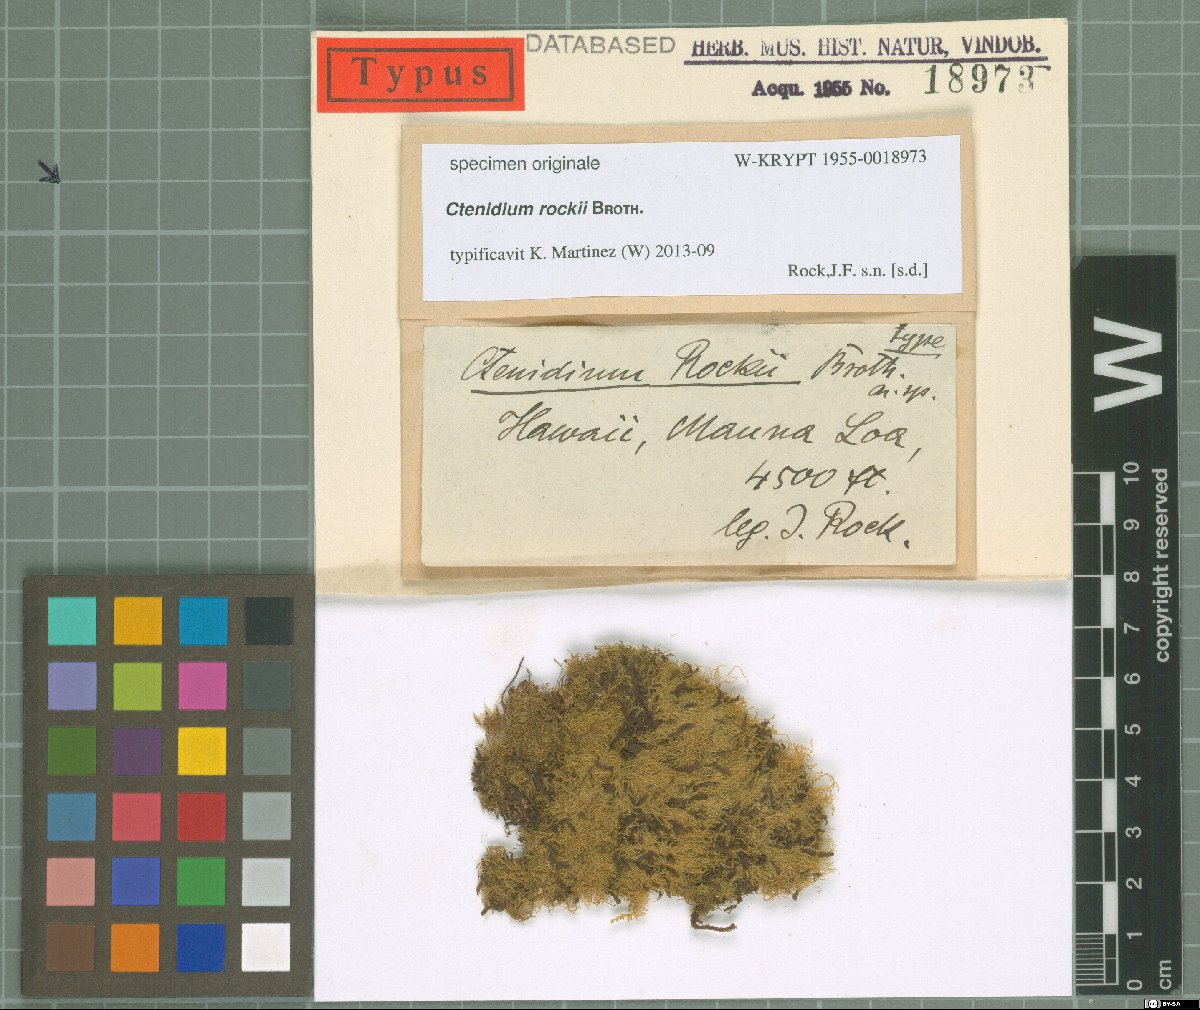 Typus
DATABASED
HERB. MUS. HIST. NATUR, VINDOB.
Acqu. 1955 No. 18973
specimen originale
W-KRYPT 1955-0018973
Ctenidium rockii BROTH.
typificavit K. Martinez (W) 2013-09
Rock,J.F. s.n. [s.d.]
type
Ctenidium Rockii Broth.
n. sp.
Hawaii, Mauna Loa,
4500 ft.
leg. J. Rock.
W
10
9
8
7
6
5
4
3
2
1
0
cm
copyright reserved
CC BY-SA